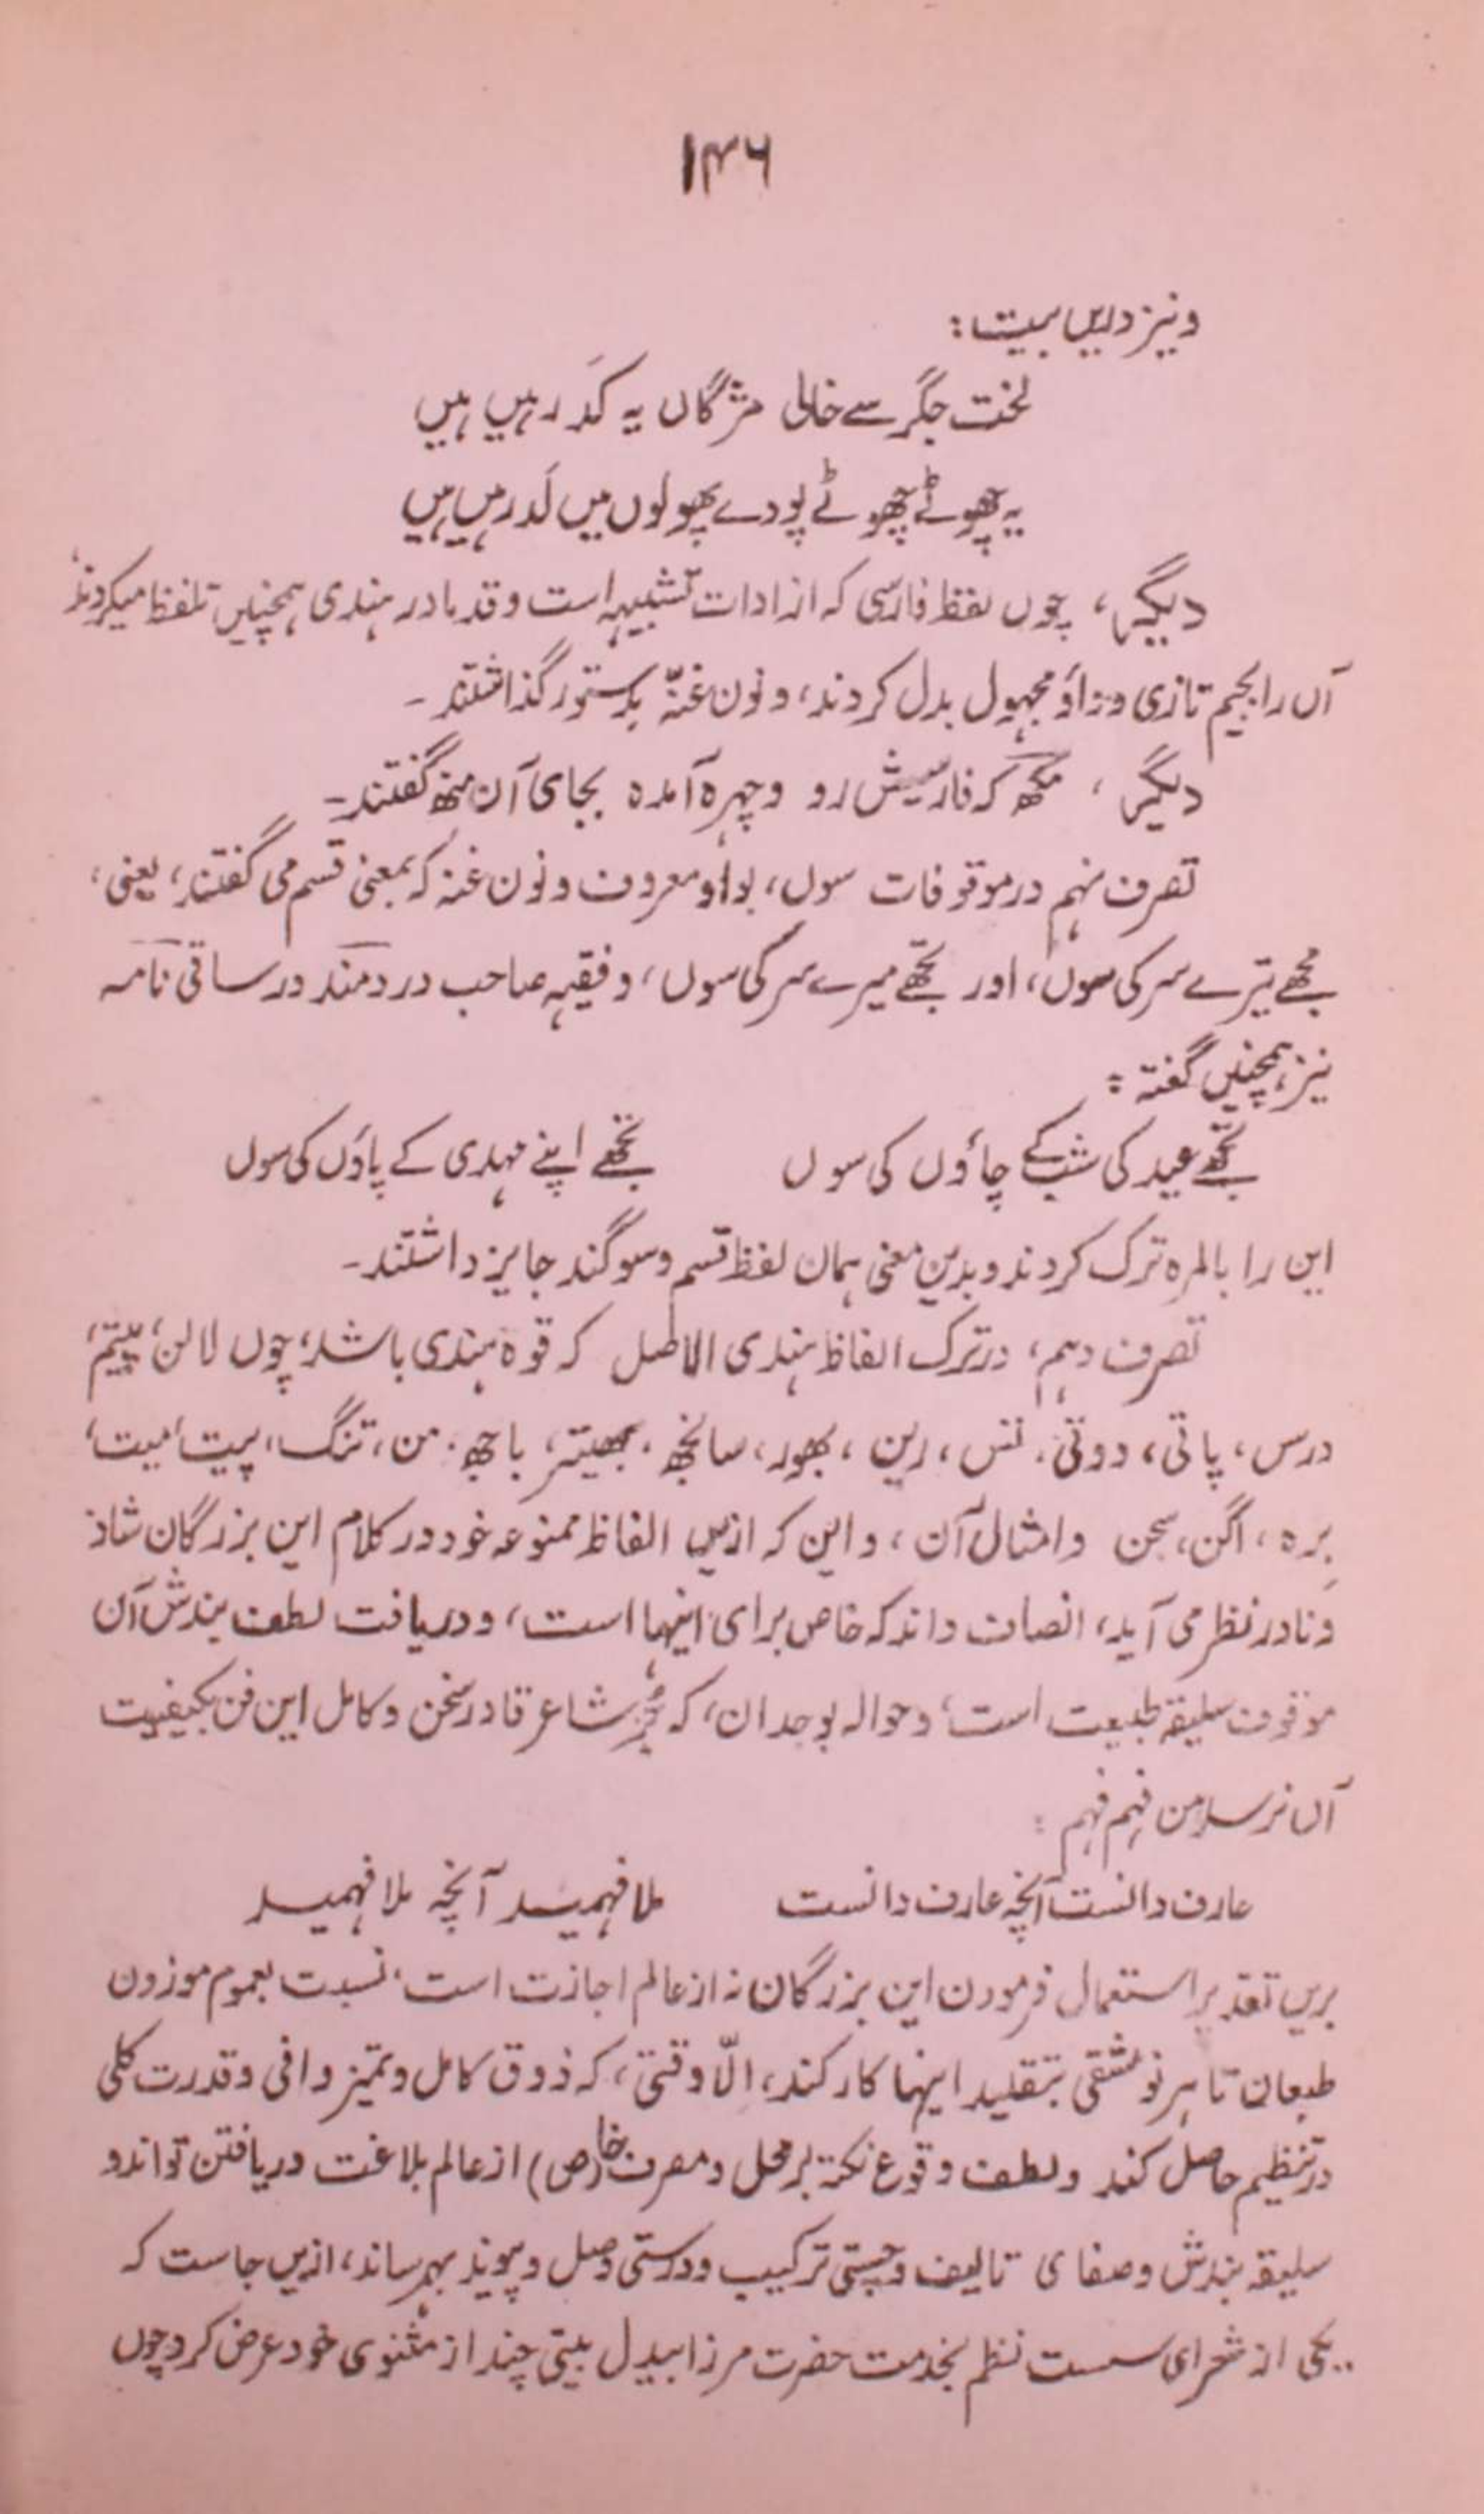 ۱۴۶
ونیز دریں بیت:
لخت جگر سے خالی مژگاں یہ کَد رہیں ہیں
یہ چھوٹے چھوٹے پودے پھولوں میں لَد رہیں ہیں
دیگر، چوں لفظ فارسی کہ از ادات تشبیہہ است و قدما در ہندی ہمچنیں تلفظ میکردند
آں را بجیم تازی و واؤ مجہول بدل کردند، و نون غنہّ بدستور گذاشتند۔
دیگر، مکھ کہ فارسیش رو و چہرہ آمدہ بجای آن منھ گفتند۔
تصرف نہم در موقوفات سوں، بواو معروف و نون غنہ کہ بمعنی قسم می گفتند، یعنی،
مجھے تیرے سر کی سوں، اور تجھے میرے سر کی سوں، و فقیہہ صاحب دردمند در ساقی نامہ
نیز ہمچنیں گفتہ:
تجھے عید کی شب کے چاؤں کی سوں تجھے اپنے مہدی کے پاؤں کی سوں
این را بالمرہ ترک کردند و بدین معنی ہمان لفظ قسم و سوگند جایز داشتند۔
تصرف دہم، در ترک الفاظ ہندی الاصل کہ قوہ ہندی باشد، چوں لالن، پیتم،
درس، پاتی، دوتی، نس، رین، بھور، سانجھ، بھیتر، باجھ، من، تنگ، پیت، میت،
برہ، اگن، سجن و امثال آن، و این کہ ازیں الفاظ ممنوعہ خود در کلام این بزرگان شاذ
و نادر نظر می آید، انصاف داند کہ خاص برای اینہا است، و دریافت لطف بندش آن
موقوف سلیقہ طبیعت است، و حوالہ بوجدان، کہ جُز شاعر قادر سخن و کامل این فن بکیفیت
آں نرسد من فہم فہم:
عارف دانست آنچہ عارف دانست ملا فہمید آنچہ ملا فہمید
بریں تقدیر استعمال فرمودن این بزرگان نہ از عالم اجازت است، نسبت بعموم موزون
طبعان تا ہر نو مشقی بتقلید اینہا کار کند، الّا وقتی، کہ ذوق کامل و تمیز وافی و قدرت کلی
در تنظیم حاصل کند و لطف وقوع نکتہ بر محل و مصرف خا(ص) از عالم بلاغت دریافتن تواند و
سلیقہ بندش و صفای تالیف و چستی ترکیب و درستی وصل و پیوند بہم رساند، ازیں جاست کہ
یکی از شعرای سست نظم بخدمت حضرت مرزا بیدل بیتی چند از مثنوی خود عرض کرد چوں